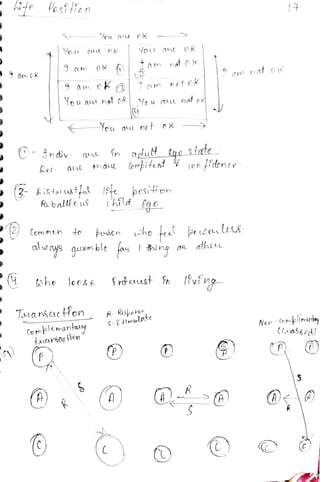 Life Position
17
You are OK
You are ok
You are ok
I am ok
I am not ok
I am ok
I am not ok
I am ok
I am not ok
You are not ok
You are not ok
You are not ok
① - Indiv. are in adult ego state
are more competent & confidence
③ - Distrustful life position
Reballious child Ego
② Common to person who feel powerless
always grumble for 1 thing or other
④ who loose Interest in living
Transaction
R. Response
S. Stimulate
Complementary
transaction
Non-complimentary
(Crossed)
P P P P P P
S S
A A A R A A A
R S R
C C C C C C